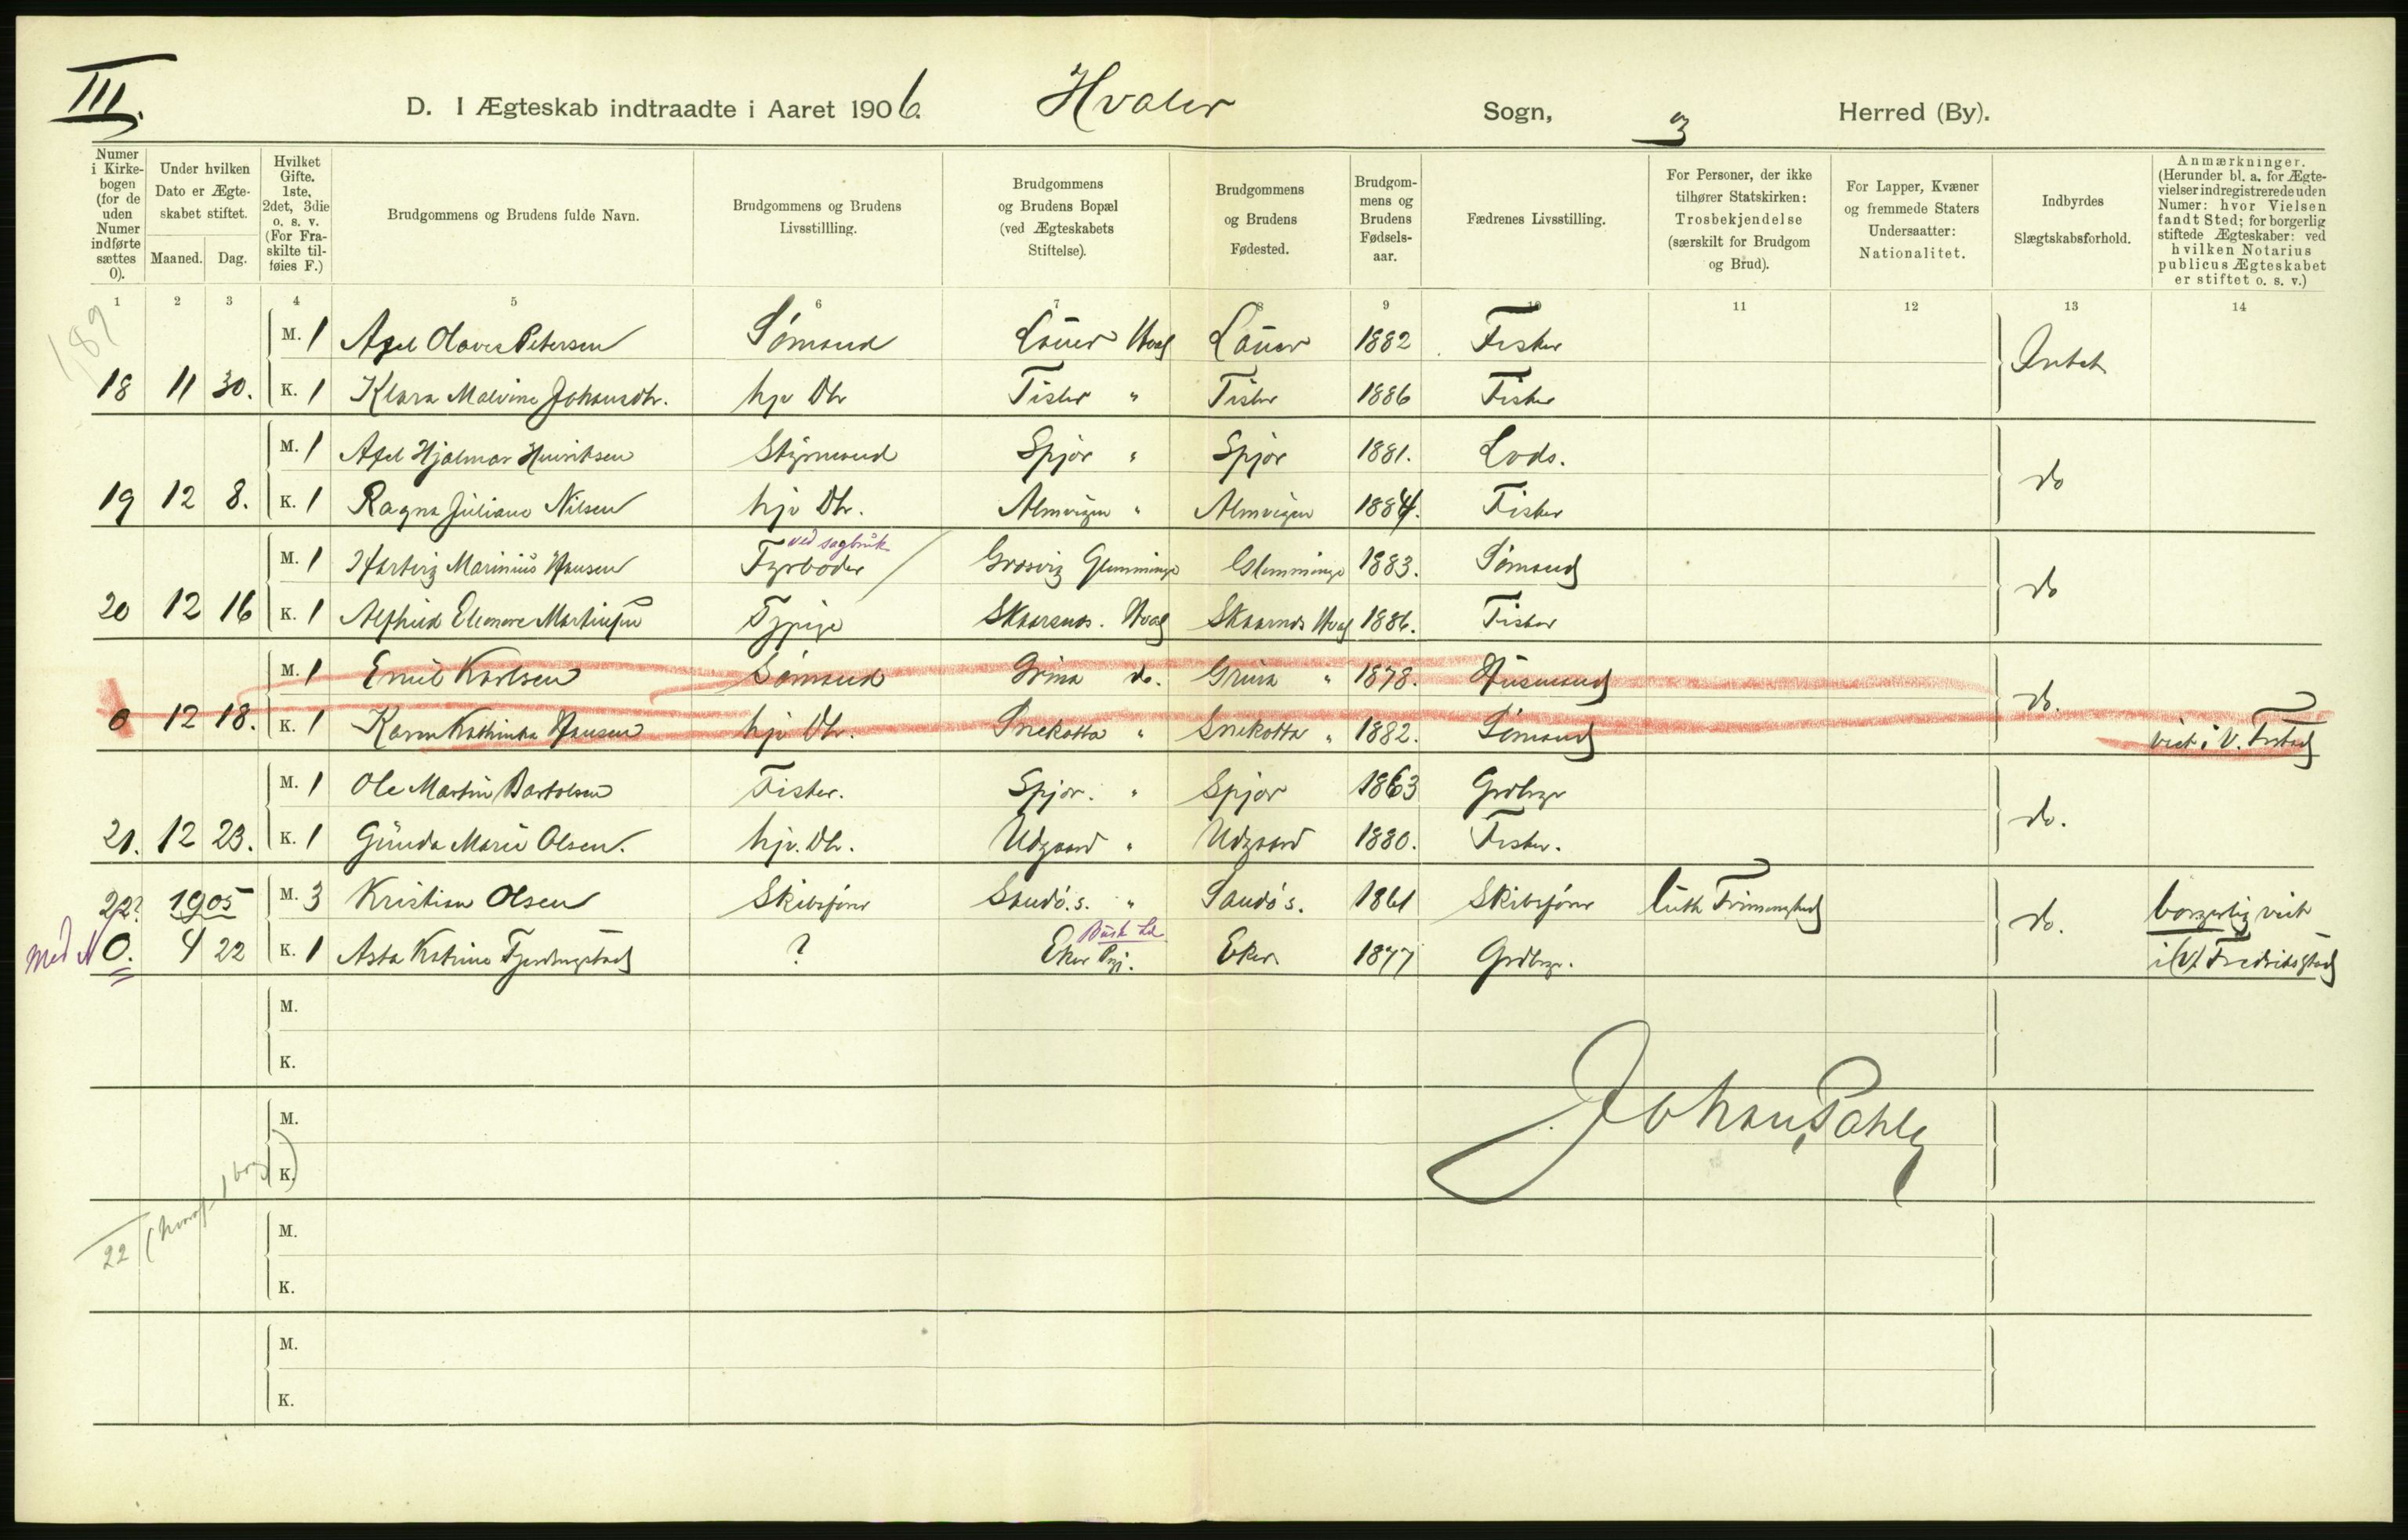 III.
D. I Ægteskab indtraadte i Aaret 1906. Hvaler Sogn, og Herred (By).
Numer i Kirkebogen (for de uden Numer indførte sættes 0).
Under hvilken Dato er Ægteskabet stiftet.
Maaned. Dag.
Hvilket Gifte. 1ste, 2det, 3die o. s. v. (For Fraskilte tilføies F.)
Brudgommens og Brudens fulde Navn.
Brudgommens og Brudens Livsstillling.
Brudgommens og Brudens Bopæl (ved Ægteskabets Stiftelse).
Brudgommens og Brudens Fødested.
Brudgommens og Brudens Fødselsaar.
Fædrenes Livsstilling.
For Personer, der ikke tilhører Statskirken: Trosbekjendelse (særskilt for Brudgom og Brud).
For Lapper, Kvæner og fremmede Staters Undersaatter: Nationalitet.
Indbyrdes Slægtskabsforhold.
Anmærkninger. (Herunder bl. a. for Ægtevielser indregistrerede uden Numer: hvor Vielsen fandt Sted; for borgerlig stiftede Ægteskaber: ved hvilken Notarius publicus Ægteskabet er stiftet o. s. v.)
1 2 3 4 5 6 7 8 9 10 11 12 13 14
189
M. 1 Axel Olaves Petersen Sømand Lauer Hval Lauer 1882 Fisker Intet
18 11 30. K. 1 Klara Malvine Johansdtr. hjv Dtr Tisler " Tisler 1886 Fisker
M. 1 Axel Hjalmar Henriksen Styrmand Spjær " Spjær 1881. Lods. do
19 12 8. K. 1 Ragna Juliane Nilsen hjv Dtr. Almvigen " Almvigen 1884. Fisker
ved sagbruk
M. 1 Hartvig Marinius Hansen Fyrbøder Gresvig Glemminge Glemminge 1883. Sømand do
20 12 16 K. 1 Alfhild Elenore Martinsen Tjpige Skaarsnds. Hval Skaarnds Hval 1886. Fisker
M. 1 Emil Karlsen Sømand Grima do. Grima " 1878. Husmand do.
0 12 18. K. 1 Karen Kathinka Hansen hjv Dtr. Snekotta " Snekotta " 1882. Sømand viet i V. Frstad
M. 1 Ole Martin Bartolsen Fisker. Spjær. " Spjær 1863 Grdbrgr do.
21. 12 23. K. 1 Gunda Marie Olsen. hjv. Dtr. Udgaard " Udgaard 1880. Fisker.
22? 1905 M. 3 Kristian Olsen Skibsfører Sandø. s. " Sandø s. 1861 Skibsfører luth Frimenighed do. borgerlig viet
Busk
med 0. 4 22 K. 1 Asta Katrine Fjerdingstad ? Eker Pgj. Eker 1877 Grdbrgr. i (V) Fredrikstad
M.
K.
M.
K.
Johan Pahle
22 (hvoraf 1 brg)
M.
K.
M.
K.